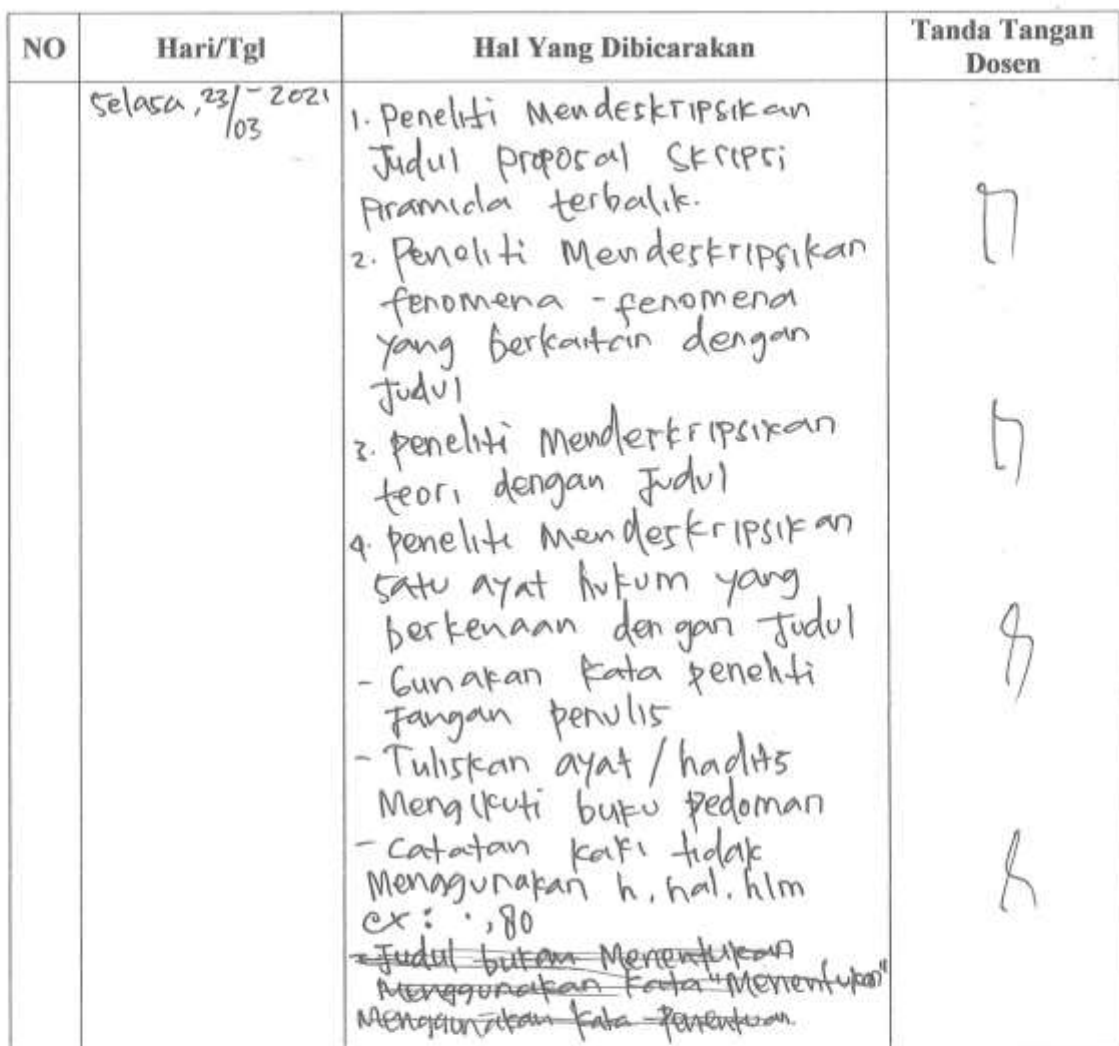 NO Hari/Tgl Hal Yang Dibicarakan Tanda Tangan Dosen
Selasa, 23/03 - 2021
1. Peneliti Mendeskripsikan
Judul proposal skripsi
piramida terbalik.
2. Peneliti Mendeskripsikan
fenomena - fenomena
yang berkaitan dengan
Judul
3. peneliti Mendeskripsikan
teori dengan Judul
4. peneliti Mendeskripsikan
satu ayat hukum yang
berkenaan dengan Judul
- Gunakan kata peneliti
Jangan penulis
- Tuliskan ayat / hadits
Mengikuti buku pedoman
- Catatan kaki tidak
Menggunakan h. hal. hlm
ex : . , 80
- Judul bukan Menentukan
Menggunakan kata "Menentukan"
Menggunakan kata Penentuan.